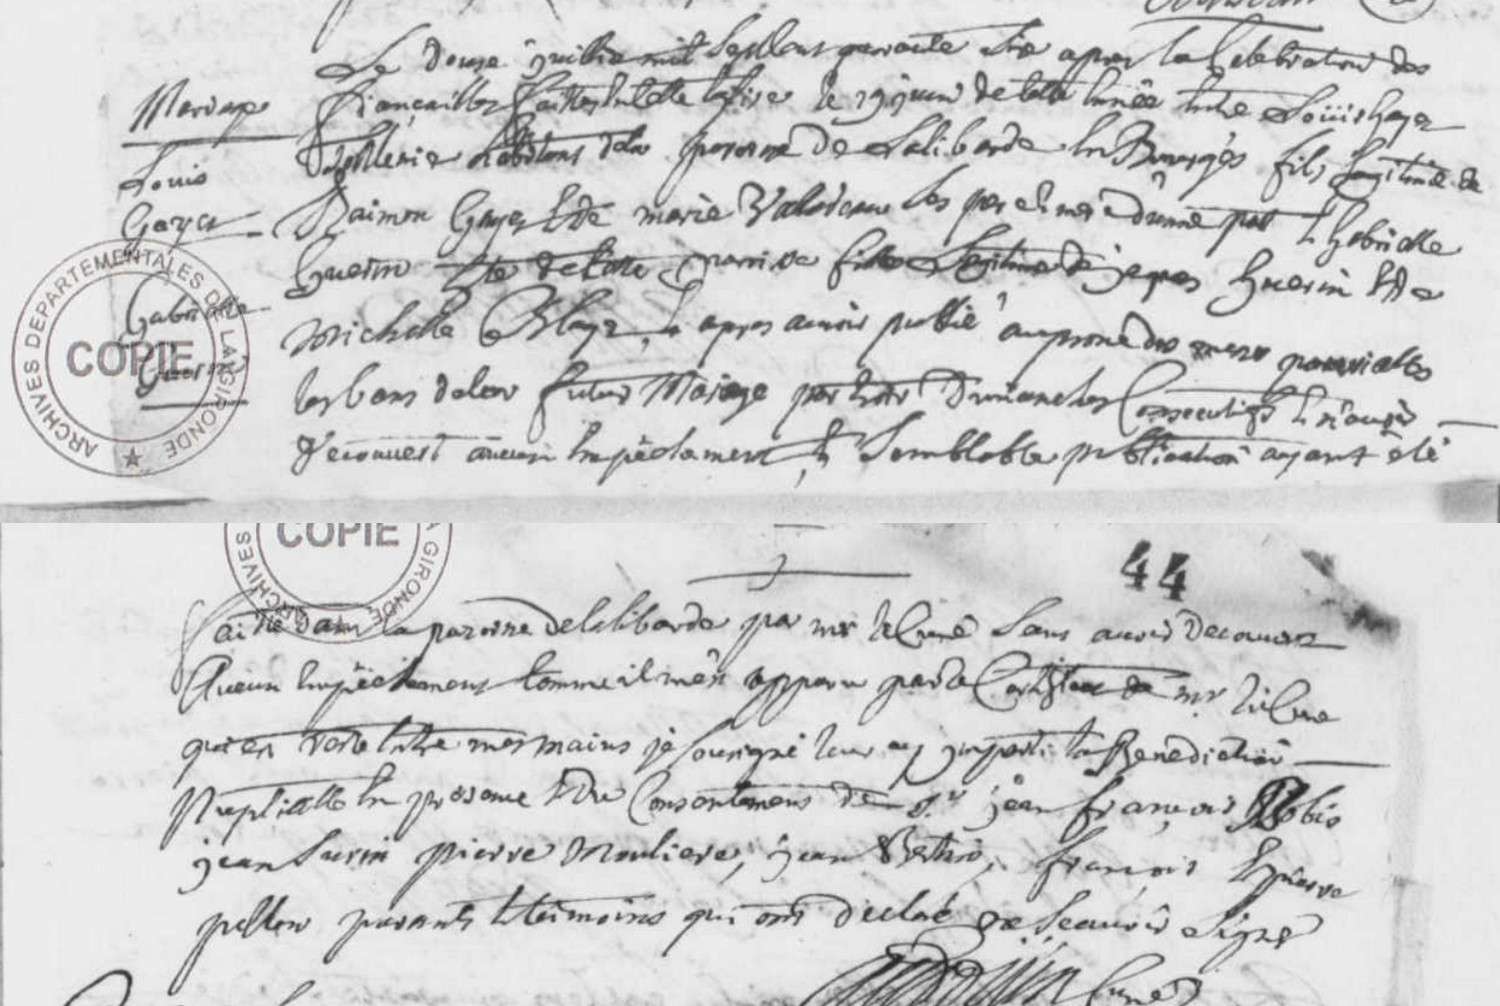 Le douse juillie mil septsens quarante six apres la Celebration des
Mariage
fiançailles faittes en cette Eglise le 29 juin de cette année entre Louis Gayes
Louis
habitans de la paroisse de Laliborde en Bourgés fils legitime de
Gayes
Raimon Gayes et de marie Valadeau ses per et mere d'une part et Gabrielle
Gabrielle
Guerin
Guerin de cette parroisse fille legitime de jeques Guerin et de
michelle Blaye, et apres avoir publié au prone des messes parroissialles
les bans de leur futur Mariage par trois Dimanches Consecutifs et n'avoir
decouvert aucun Empechement, et semblable publication ayant été
ARCHIVES DEPARTEMENTALES DE LA GIRONDE
COPIE
COPIE
ARCHIVES GIRONDE
44
faitte dans la paroisse de Laliborde par mr le Curé sans avoir decouvert
Aucun Empechement comme il m'en apparu par le Certificat de mr le Cure
qui en reste entre mes mains je sousigné leur ay imparti la Benediction
Nuptialle en presence et du Consentement de sr jean françois
jean Surin pierre Mouliere, jean françois et pierre
pellou parants et temoins qui ont declaré ne scavoir signer
Curé